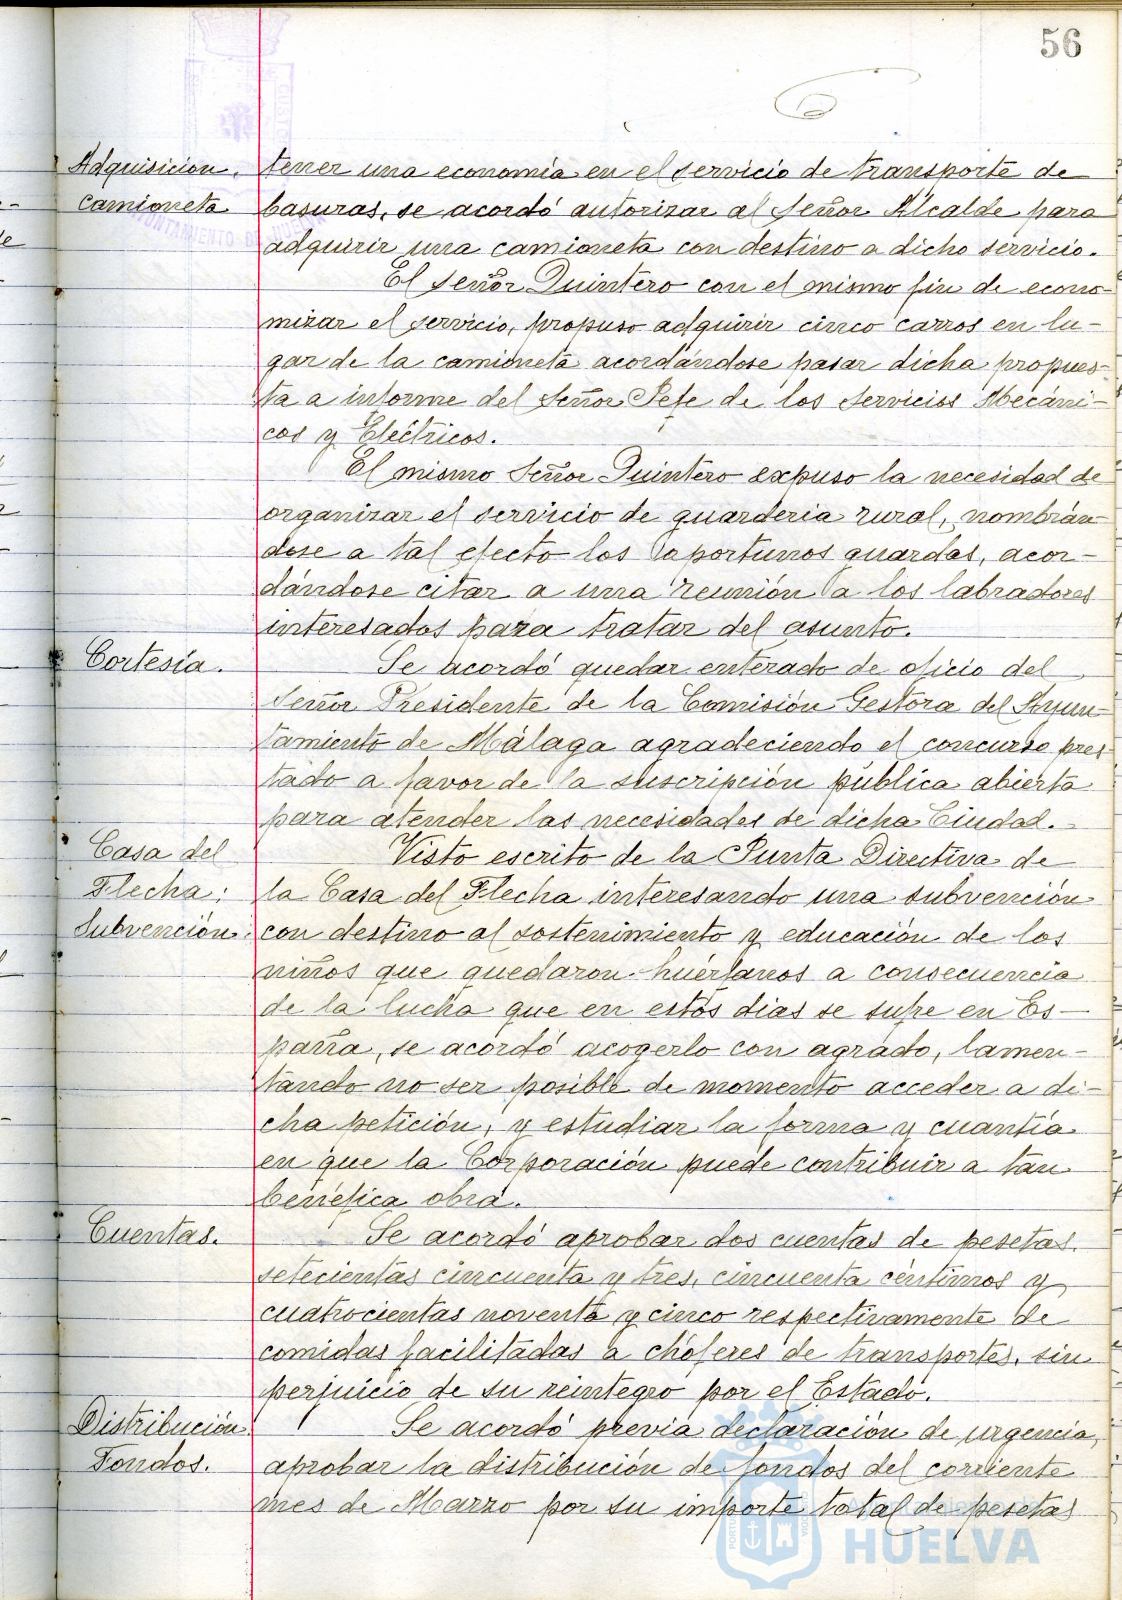 56
Adquisicion.
camioneta
tener una economía en el servicio de transporte de
basuras, se acordó autorizar al Señor Alcalde para
adquirir una camioneta con destino a dicho servicio.
El señor Quintero con el mismo fin de econo-
mizar el servicio, propuso adquirir cinco carros en lu-
gar de la camioneta acordándose pasar dicha propues-
ta a informe del Señor Jefe de los Servicios Mecáni-
cos y Eléctricos.
El mismo Señor Quintero expuso la necesidad de
organizar el servicio de guarderia rural, nombrán-
dose a tal efecto los oportunos guardas, acor-
dándose citar a una reunión a los labradores
interesados para tratar del asunto.
Cortesía.
Se acordó quedar enterado de oficio del
Señor Presidente de la Comisión Gestora del Ayun-
tamiento de Málaga agradeciendo el concurso pres-
tado a favor de la suscripción pública abierta
para atender las necesidades de dicha Ciudad.
Casa del
Flecha:
Subvención.
Visto escrito de la Junta Directiva de
la Casa del Flecha interesando una subvención
con destino al sostenimiento y educación de los
niños que quedaron huérfanos a consecuencia
de la lucha que en estos dias se sufre en Es-
paña, se acordó acogerlo con agrado, lamen-
tando no ser posible de momento acceder a di-
cha petición, y estudiar la forma y cuantía
en que la Corporación puede contribuir a tan
benéfica obra.
Cuentas.
Se acordó aprobar dos cuentas de pesetas
setecientas cincuenta y tres, cincuenta céntimos y
cuatrocientas noventa y cinco respectivamente de
comidas facilitadas a chóferes de transportes, sin
perjuicio de su reintegro por el Estado.
Distribución
Fondos.
Se acordó previa declaración de urgencia,
aprobar la distribución de fondos del corriente
mes de Marzo por su importe total de pesetas
HUELVA